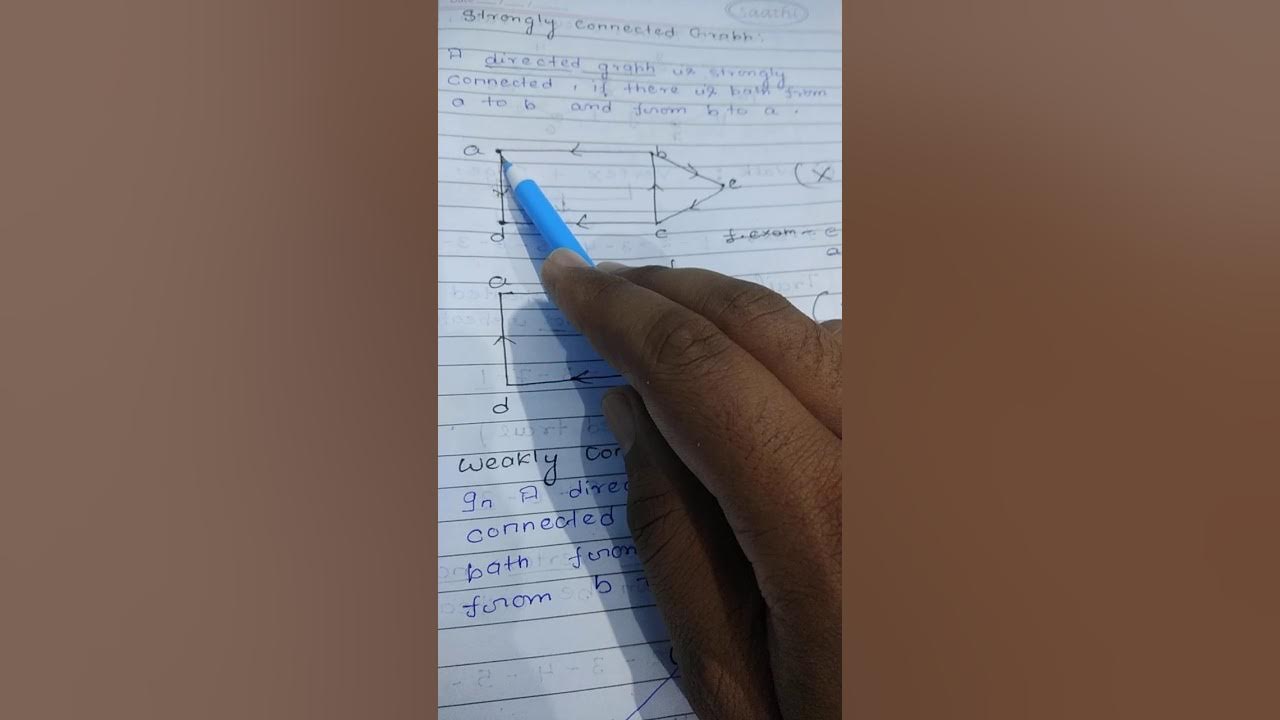 saathi
Strongly Connected Graph:
A directed graph is strongly
connected, if there is path from
a to b and from b to a.
a b
e (X
d c
from e
a
a
(
d
Weakly Con
In A direc
connected
path from
from b